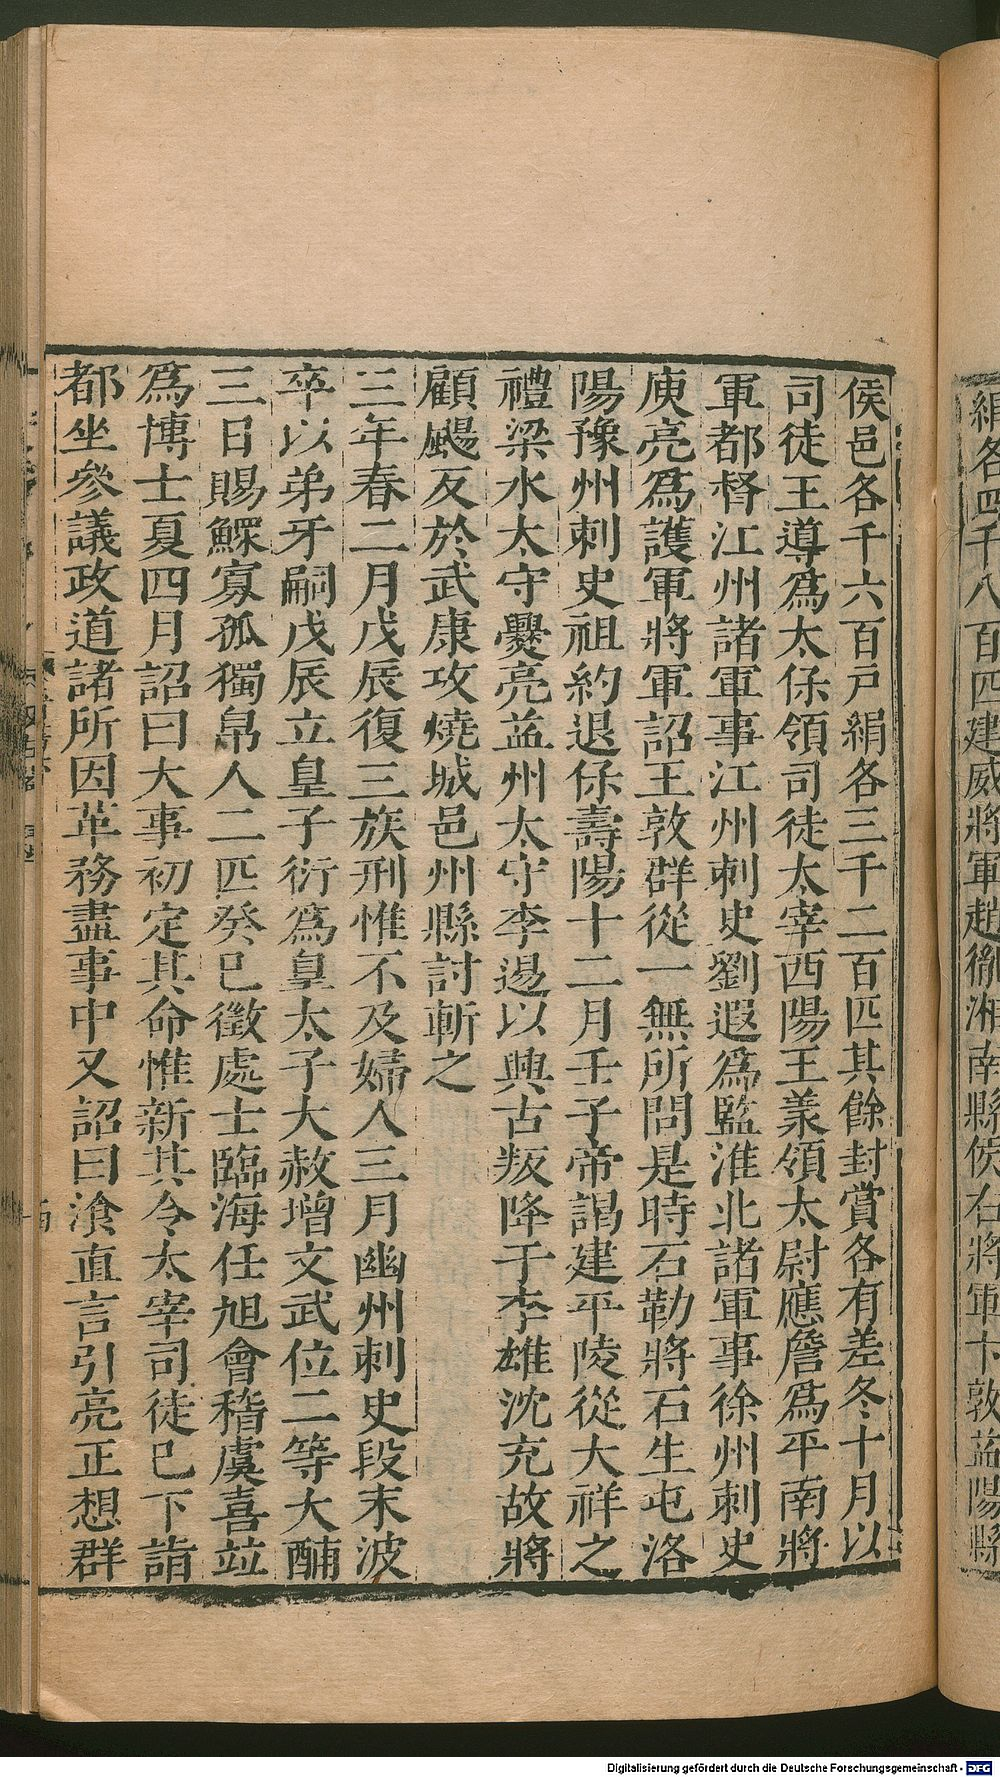 絹各四千八百匹建威將軍趙徹湘南縣侯右將軍卞敦益陽縣
侯邑各千六百戸絹各三千二百匹其餘封賞各有差冬十月以
司徒王導爲太保領司徒太宰西陽王羕領太尉應詹爲平南將
軍都督江州諸軍事江州刺史劉遐爲監淮北諸軍事徐州刺史
庾亮爲護軍將軍詔王敦群從一無所問是時石勒將石生屯洛
陽豫州刺史祖約退保壽陽十二月壬子帝謁建平陵從大祥之
禮梁水太守爨亮益州太守李逷以興古叛降于李雄沈充故將
顧颺反於武康攻燒城邑州縣討斬之
三年春二月戊辰復三族刑惟不及婦人三月幽州刺史段末波
卒以弟牙嗣戊辰立皇子衍爲皇太子大赦增文武位二等大酺
三日賜鰥寡孤獨帛人二匹癸巳徵處士臨海任旭會稽虞喜竝
爲博士夏四月詔曰大事初定其命惟新其令太宰司徒已下詣
都坐參議政道諸所因革務盡事中又詔曰飡直言引亮正想群
Digitalisierung gefördert durch die Deutsche Forschungsgemeinschaft - DFG